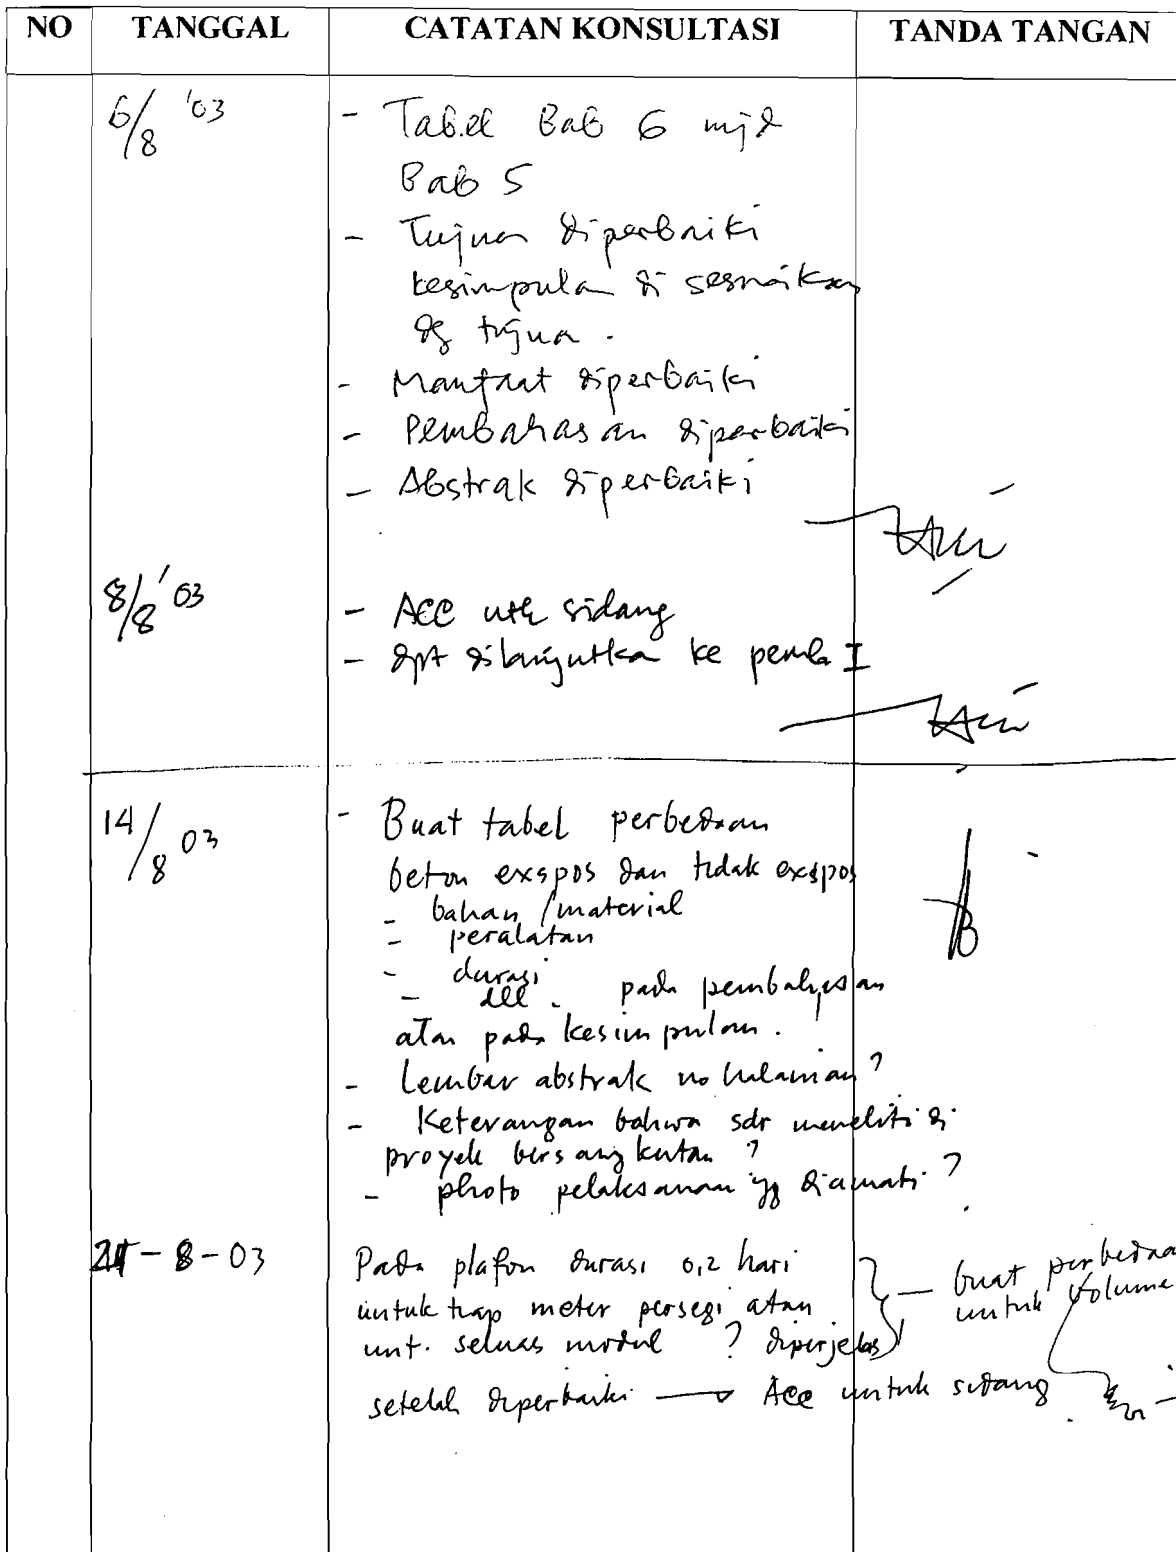 NO TANGGAL CATATAN KONSULTASI TANDA TANGAN
6/8 '03 - Tabel Bab 6 mjd
Bab 5
- Tujuan diperbaiki
kesimpulan di sesuaikan
dg tujuan.
- Manfaat diperbaiki
- Pembahasan diperbaiki
- Abstrak diperbaiki
8/8 '03 - ACC utk sidang
- dpt dilanjutkan ke pemb I
14/8 03 - Buat tabel perbedaan
beton exspos dan tidak exspos
- bahan/material
- peralatan
- durasi
- dll. pada pembahasan
atau pada kesimpulan.
- Lembar abstrak no halaman?
- Keterangan bahwa sdr meneliti di
proyek bersangkutan?
- photo pelaksanaan yg diamati?
- 8 - 03 Pada plafon durasi 0,2 hari
untuk tiap meter persegi atau
unt. seluas modul ? diperjelas
— buat perbedaan
untuk volume
setelah diperbaiki → Acc untuk sidang